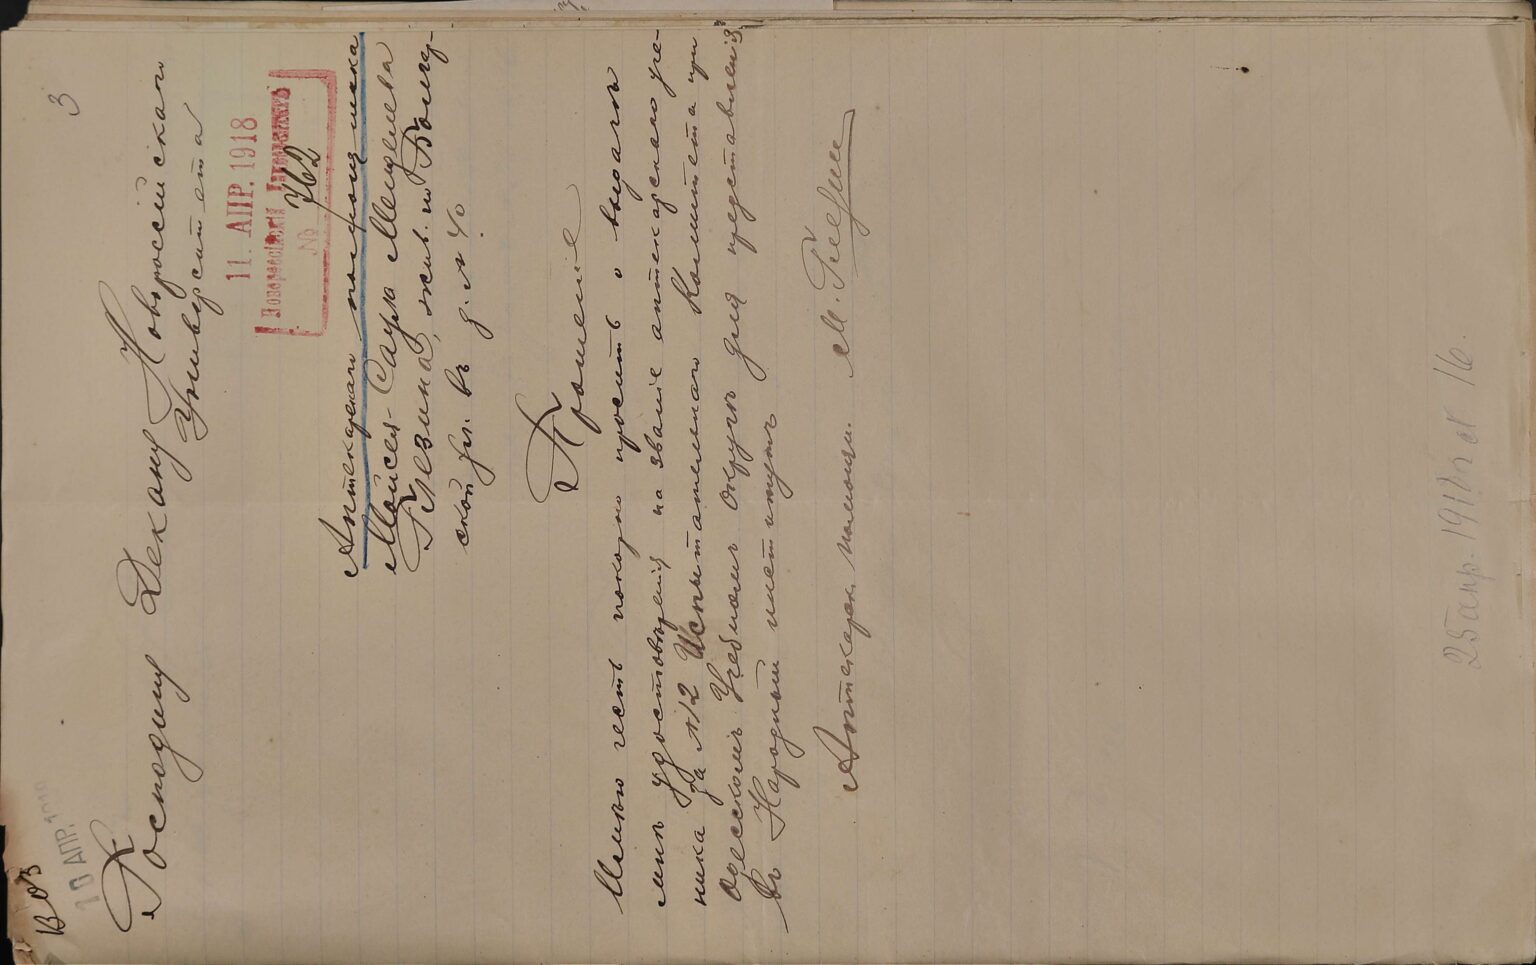 3
10 АПР. 1918
Господину Декану Новороссійскаго
Университета
11. АПР. 1918
Новороссійскій Университетъ
№ 762
Аптекарскаго помощника
Мойсея-Саула Менделева
Глезина, жив. по Болгар-
ской ул. въ д. № 40
Прошеніе
Имѣю честь покорно просить о выдачѣ
мнѣ удостовѣренія на званіе аптекарскаго уче-
ника за №12 Испытательнаго Комитета при
Одесскомъ Учебномъ Округѣ для представленія
въ Народный институтъ
Аптекарск. помощн. М. Глезин
25 апр. 1918 г. № 16.